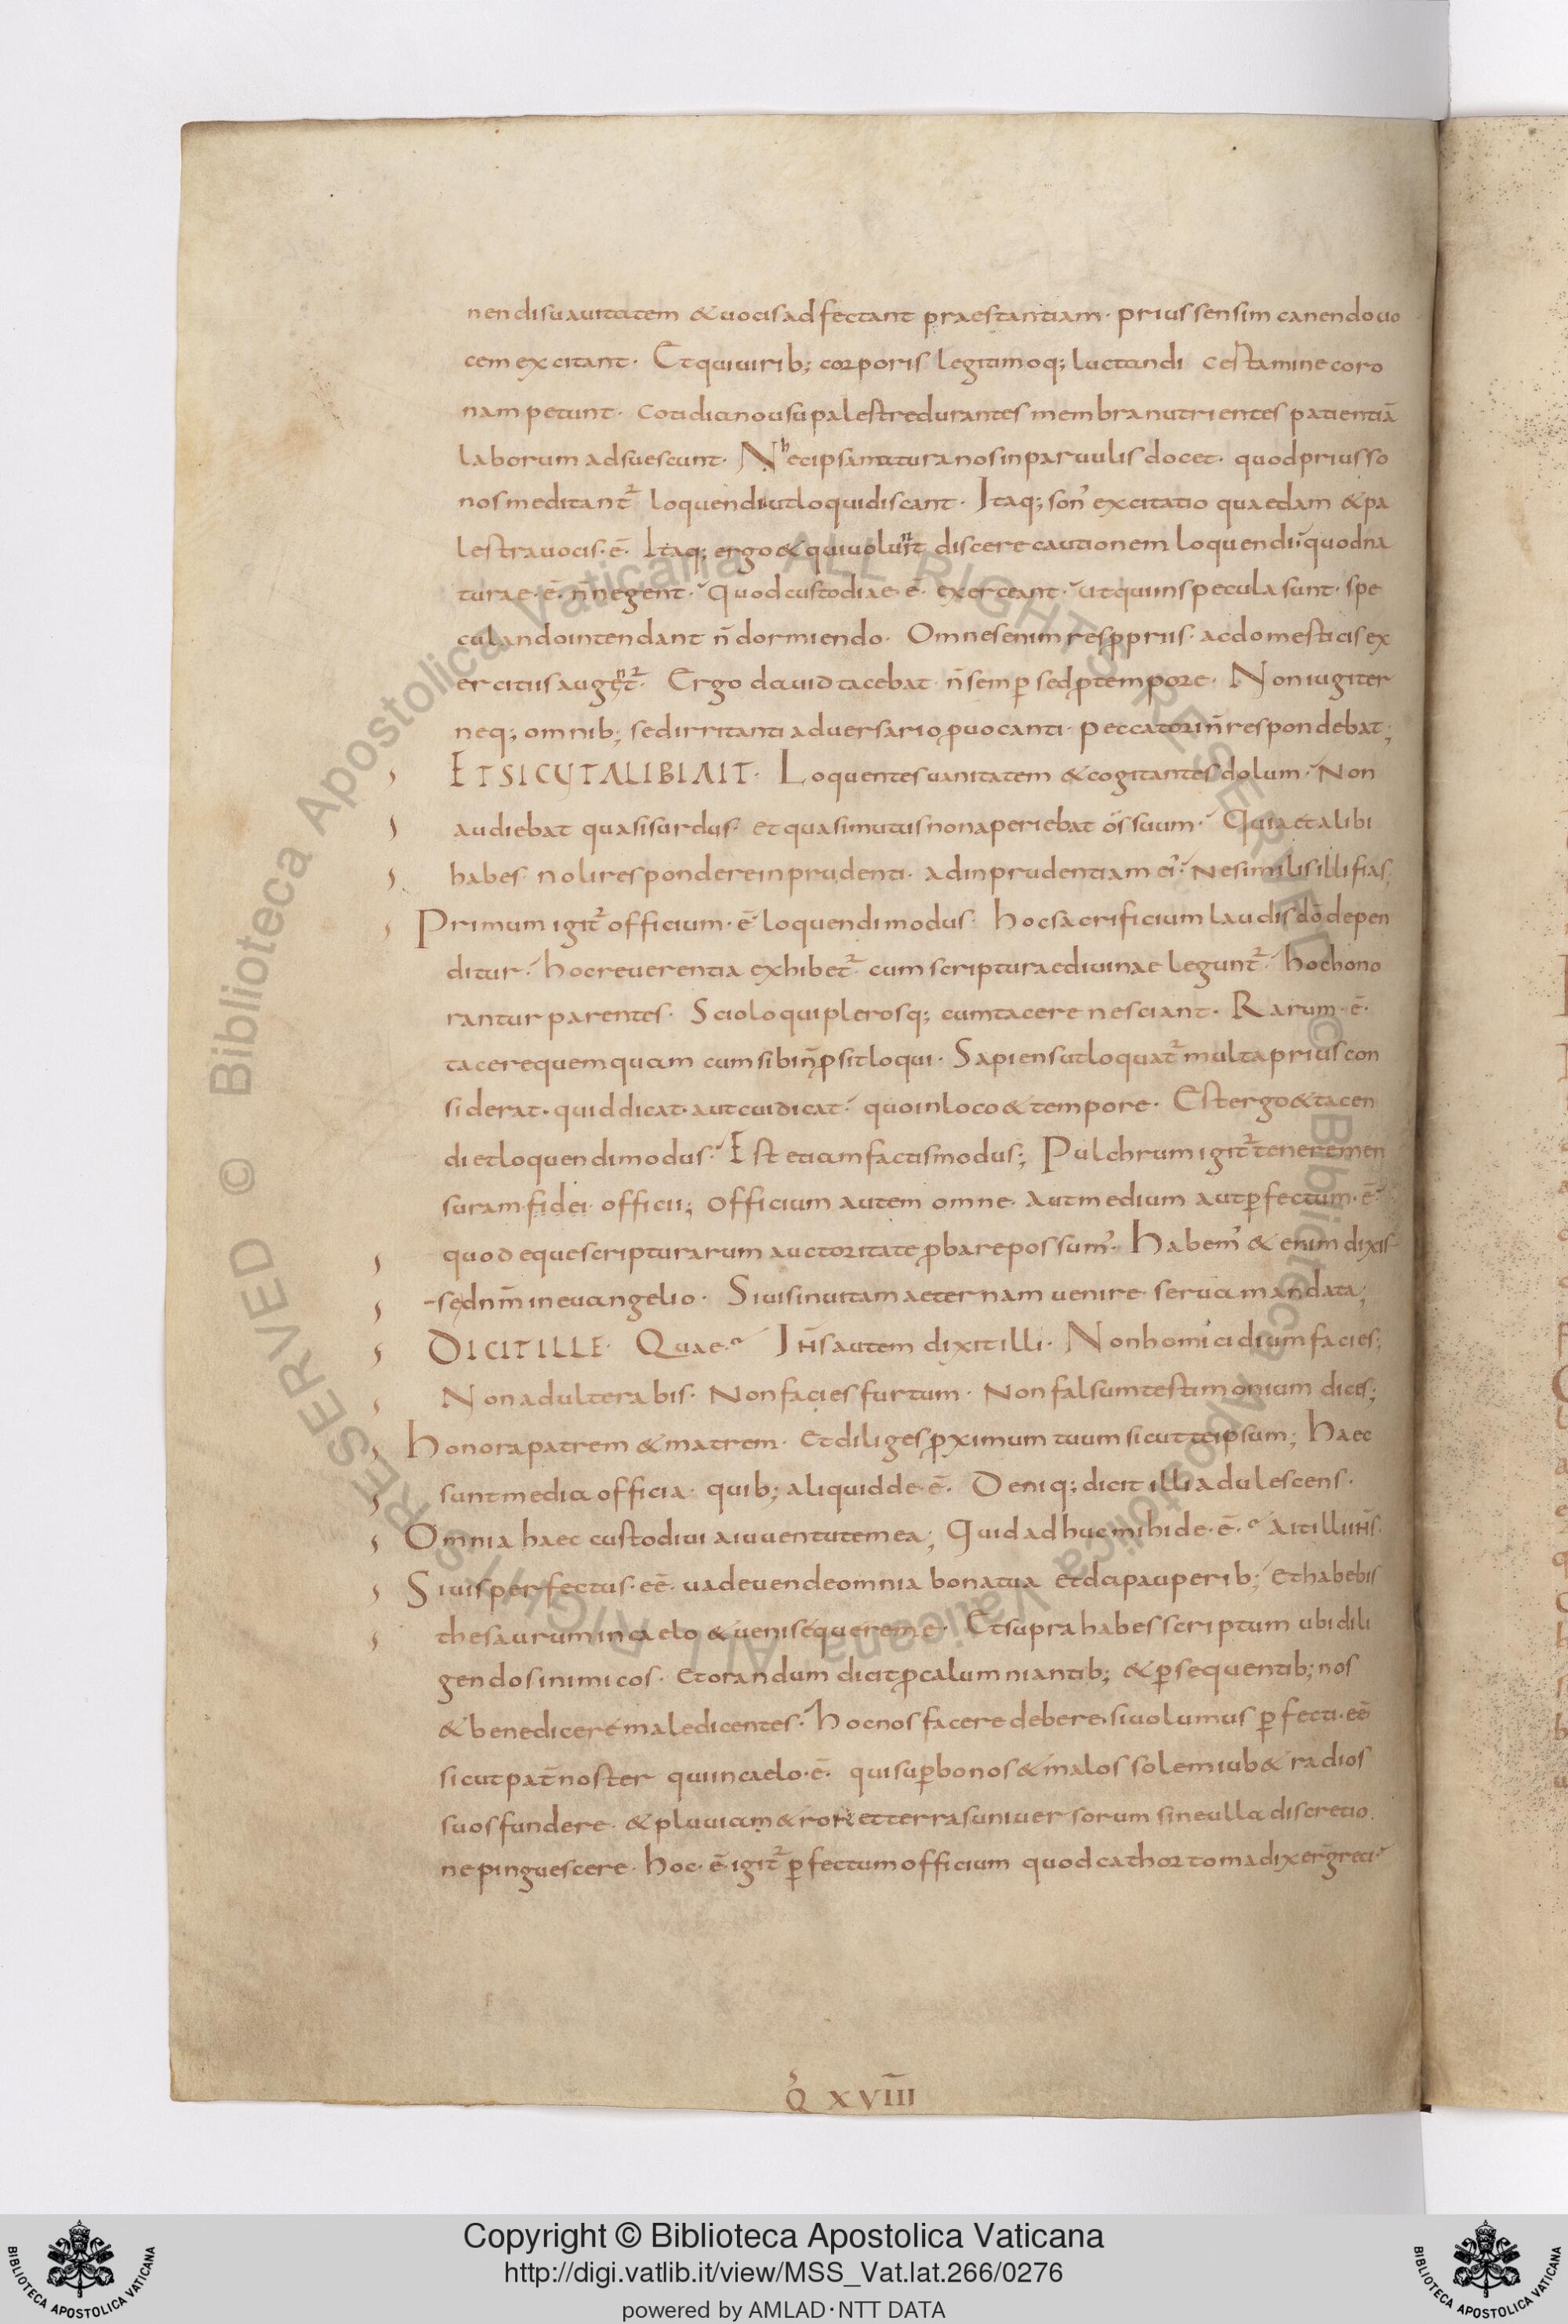 nendi suavitatem & vocis adfectant praestantiam· prius sensim canendo vo
cem excitant· Et qui virib; corporis legitimoq; luctandi cestamine coro
nam petunt· cotidiano usu palestre durantes membra nutrientes patientiā
laborum adsuescunt· N^hec ipsa natura nos in parvulis docet· quod prius so
nos meditant᷑ loquendi ut loqui discant· Itaq; son᾽ excitatio quaedam & pa
lestra vocis·ē· Itaq; ergo & qui volunt discere cautionem loquendi· quod na
turae·ē· n̄ negent· Quod custodiae·ē· exerceant· ut qui in specula sunt· spe
culando intendant n̄ dormiendo· Omnes enim res ꝓpriis· ac domesticis ex
ercitiis augent᷑· Ergo david tacebat· n̄ semꝑ sed ꝓ tempore· Non iugiter
neq; omnib; sed irritanti adversario ꝓvocanti· peccatori n̄ respondebat;
ET SICUT ALIBI AIT· Loquentes vanitatem & cogitantes dolum· Non
audiebat quasi surdus· et quasi mutus non aperiebat os suum· Quia et alibi
habes· noli respondere inprudenti· ad inprudentiam ei᾽· Ne similis illi fias;
Primum igit᷑ officium·ē· loquendi modus· hoc sacrificium laudis dō depen
ditur· hoc reverentia exhibet᷑ cum scripturae divinae legunt᷑· hoc hono
rantur parentes· Scio loqui plerosq; cum tacere nesciant· Rarum·ē·
tacere quemquam cum sibi n̄ ꝓsit loqui· Sapiens ut loquat᷑ multa prius con
siderat· quid dicat· aut cui dicat· quo in loco & tempore· Est ergo & tacen
di et loquendi modus· Est etiam factis modus; Pulchrum igit᷑ tenere men
suram fidei· officii; Officium autem omne· aut medium aut ꝑfectum·ē·
quod eque scripturarum auctoritate ꝓbare possum᾽· Habem᾽ & enim dixis
-se dnm̄ in evangelio· Si vis in vitam aeternam venire· serva mandata;
DICIT ILLE· Quae· Ih̄s autem dixit illi· Non homicidium facies;
Non adulterabis· Non facies furtum· Non falsum testimonium dices;
Honora patrem & matrem· Et diliges ꝓximum tuum sicut teipsum; Haec
sunt media officia· quib; aliquid de·ē· Deniq; dicit illi adulescens·
Omnia haec custodivi a iuventute mea; Quid adhuc mihi de·ē· Ait illi ih̄s·
Si vis perfectus·eē· vade vende omnia bona tua et da pauperib; Et habebis
thesaurum in caelo & veni sequere me· Et supra habes scriptum ubi dili
gendos inimicos· et orandum dicit ꝓ calumniantib; & ꝑsequentib; nos
& benedicere maledicentes· Hoc nos facere debere· si volumus ꝑfecti·eē
sicut pat̄ noster qui in caelo·ē· qui suꝑ bonos & malos solem iub& radios
suos fundere· & pluviam & rore et terras universorum sine ulla discretio
ne pinguescere· Hoc·ē· igit᷑ ꝑfectum officium quod cathortoma dixer̄ greci·
Q XVIII
Copyright © Biblioteca Apostolica Vaticana
http://digi.vatlib.it/view/MSS_Vat.lat.266/0276
powered by AMLAD·NTT DATA
BIBLIOTECA APOSTOLICA VATICANA
BIBLIOTECA APOSTOLICA VATICANA
© Biblioteca Apostolica Vaticana ALL RIGHTS RESERVED © Biblioteca Apostolica Vaticana ALL RIGHTS RESERVED